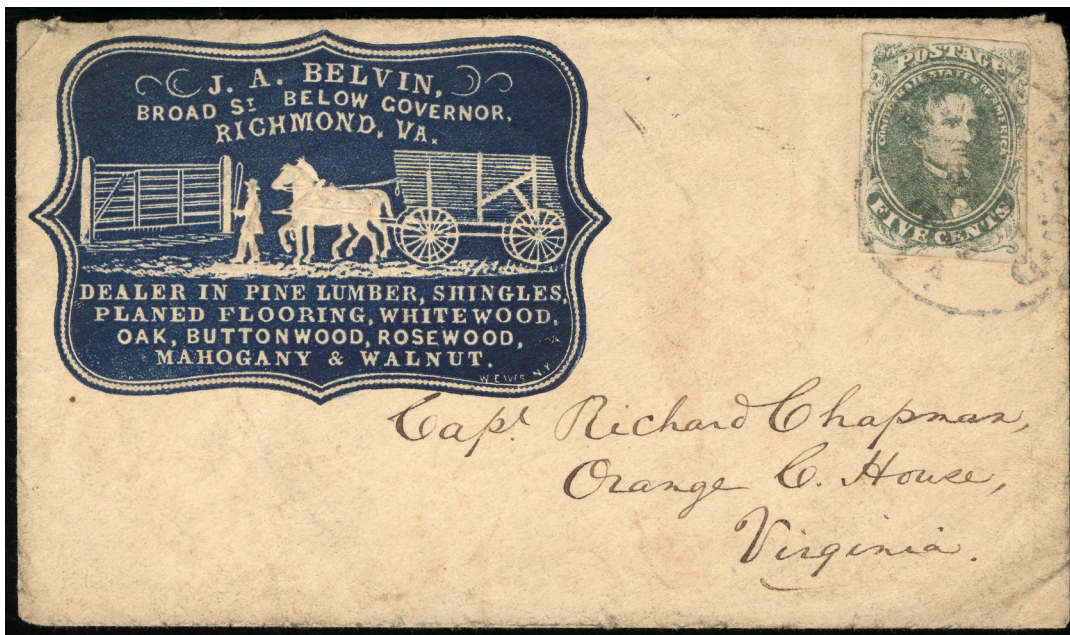 J. A. BELVIN,
BROAD ST BELOW GOVERNOR,
RICHMOND, VA.
DEALER IN PINE LUMBER, SHINGLES,
PLANED FLOORING, WHITEWOOD,
OAK, BUTTONWOOD, ROSEWOOD,
MAHOGANY & WALNUT.
POSTAGE
CONFEDERATE STATES OF AMERICA
FIVE CENTS
Capt Richard Chapman,
Orange C. House,
Virginia.